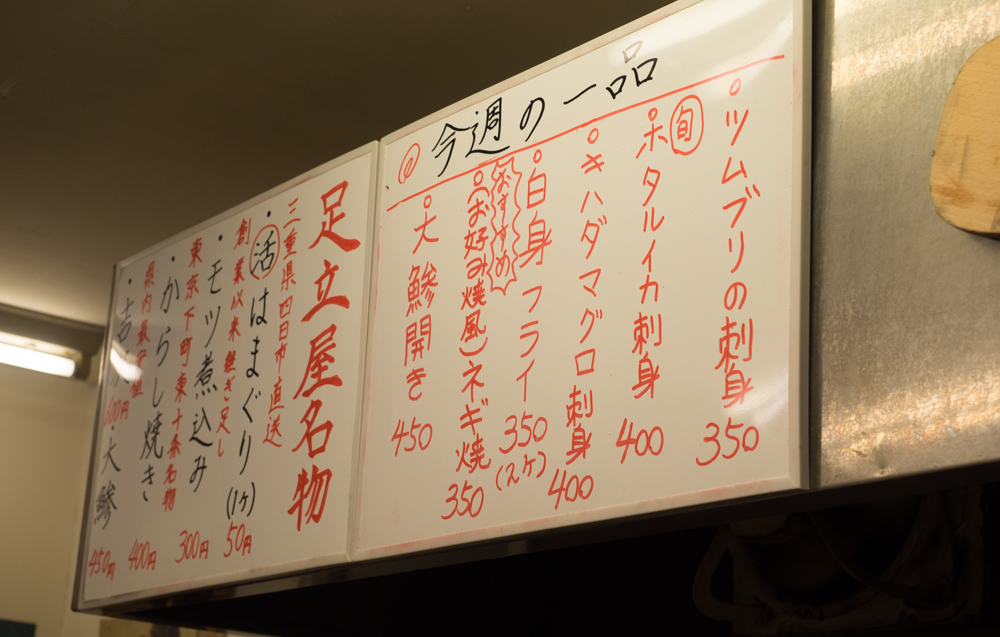 今週の一品
ツムブリの刺身 350
旬
ホタルイカ刺身 400
キハダマグロ刺身 400
白身フライ 350 (2ヶ)
おすすめ
(お好み焼風)ネギ焼 350
大鯵開き 450
足立屋名物
三重県四日市直送
・活はまぐり(1ヶ) 50円
創業以来継ぎ足し
・モツ煮込み 300円
東京下町東十条名物
・からし焼き 400円
県内最安値
・大鯵 450円